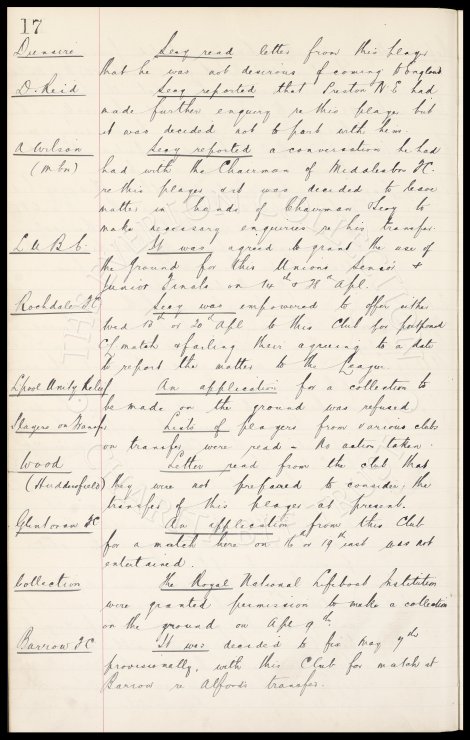 17
Dunsire Secy read letter from this player
that he was not desirous of coming to England
D. Reid Secy reported that Preston N E had
made further enquiry re this player but
it was decided not to part with him
A Wilson Secy reported a conversation he had
(M'bro) had with the Chairman of Middlesbro FC.
re this player & it was decided to leave
matter in hands of Chairman & Secy to
make necessary enquiries re his transfer.
L U B C. It was agreed to grant the use of
the Ground for this Unions Senior &
Junior Finals on 14th & 28th Apl.
Rochdale FC Secy was empowered to offer either
Wed 13th or 20th Apl to this Club for postponed
CL match & failing their agreeing to a date
to report the matter to the League.
Lpool Unity Relief An application for a collection to
be made on the ground was refused
Players on Transfer Lists of players from various clubs
on transfer were read - No action taken.
Wood Letter read from the club that
(Huddersfield) they were not prepared to consider the
transfer of this player at present.
Glentoran FC An application from this Club
for a match here on 16th or 19th inst was not
entertained.
Collection The Royal National Lifeboat Institution
were granted permission to make a collection
on the ground on Apl 9th.
Barrow FC It was decided to fix May 7th
provisionally, with this Club for match at
Barrow re Alfords transfer.